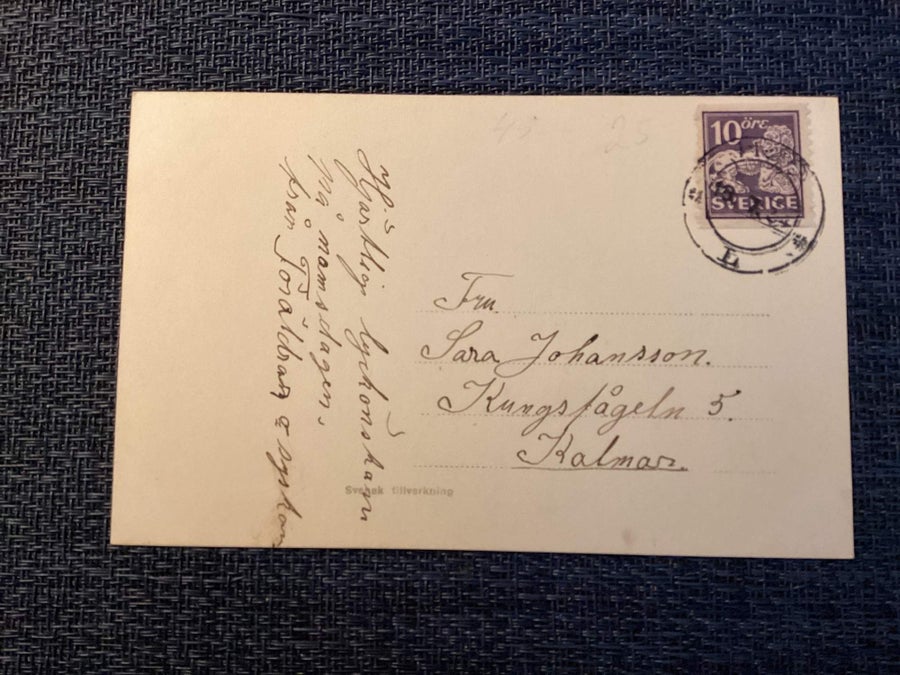 45 25
10 öre
SVERIGE
L
Hjärtlig lyckönskan
på namsdagen,
från Föräldrar & syskon
Fru
Sara Johansson.
Kungsfågeln 5.
Kalmar.
Svensk tillverkning